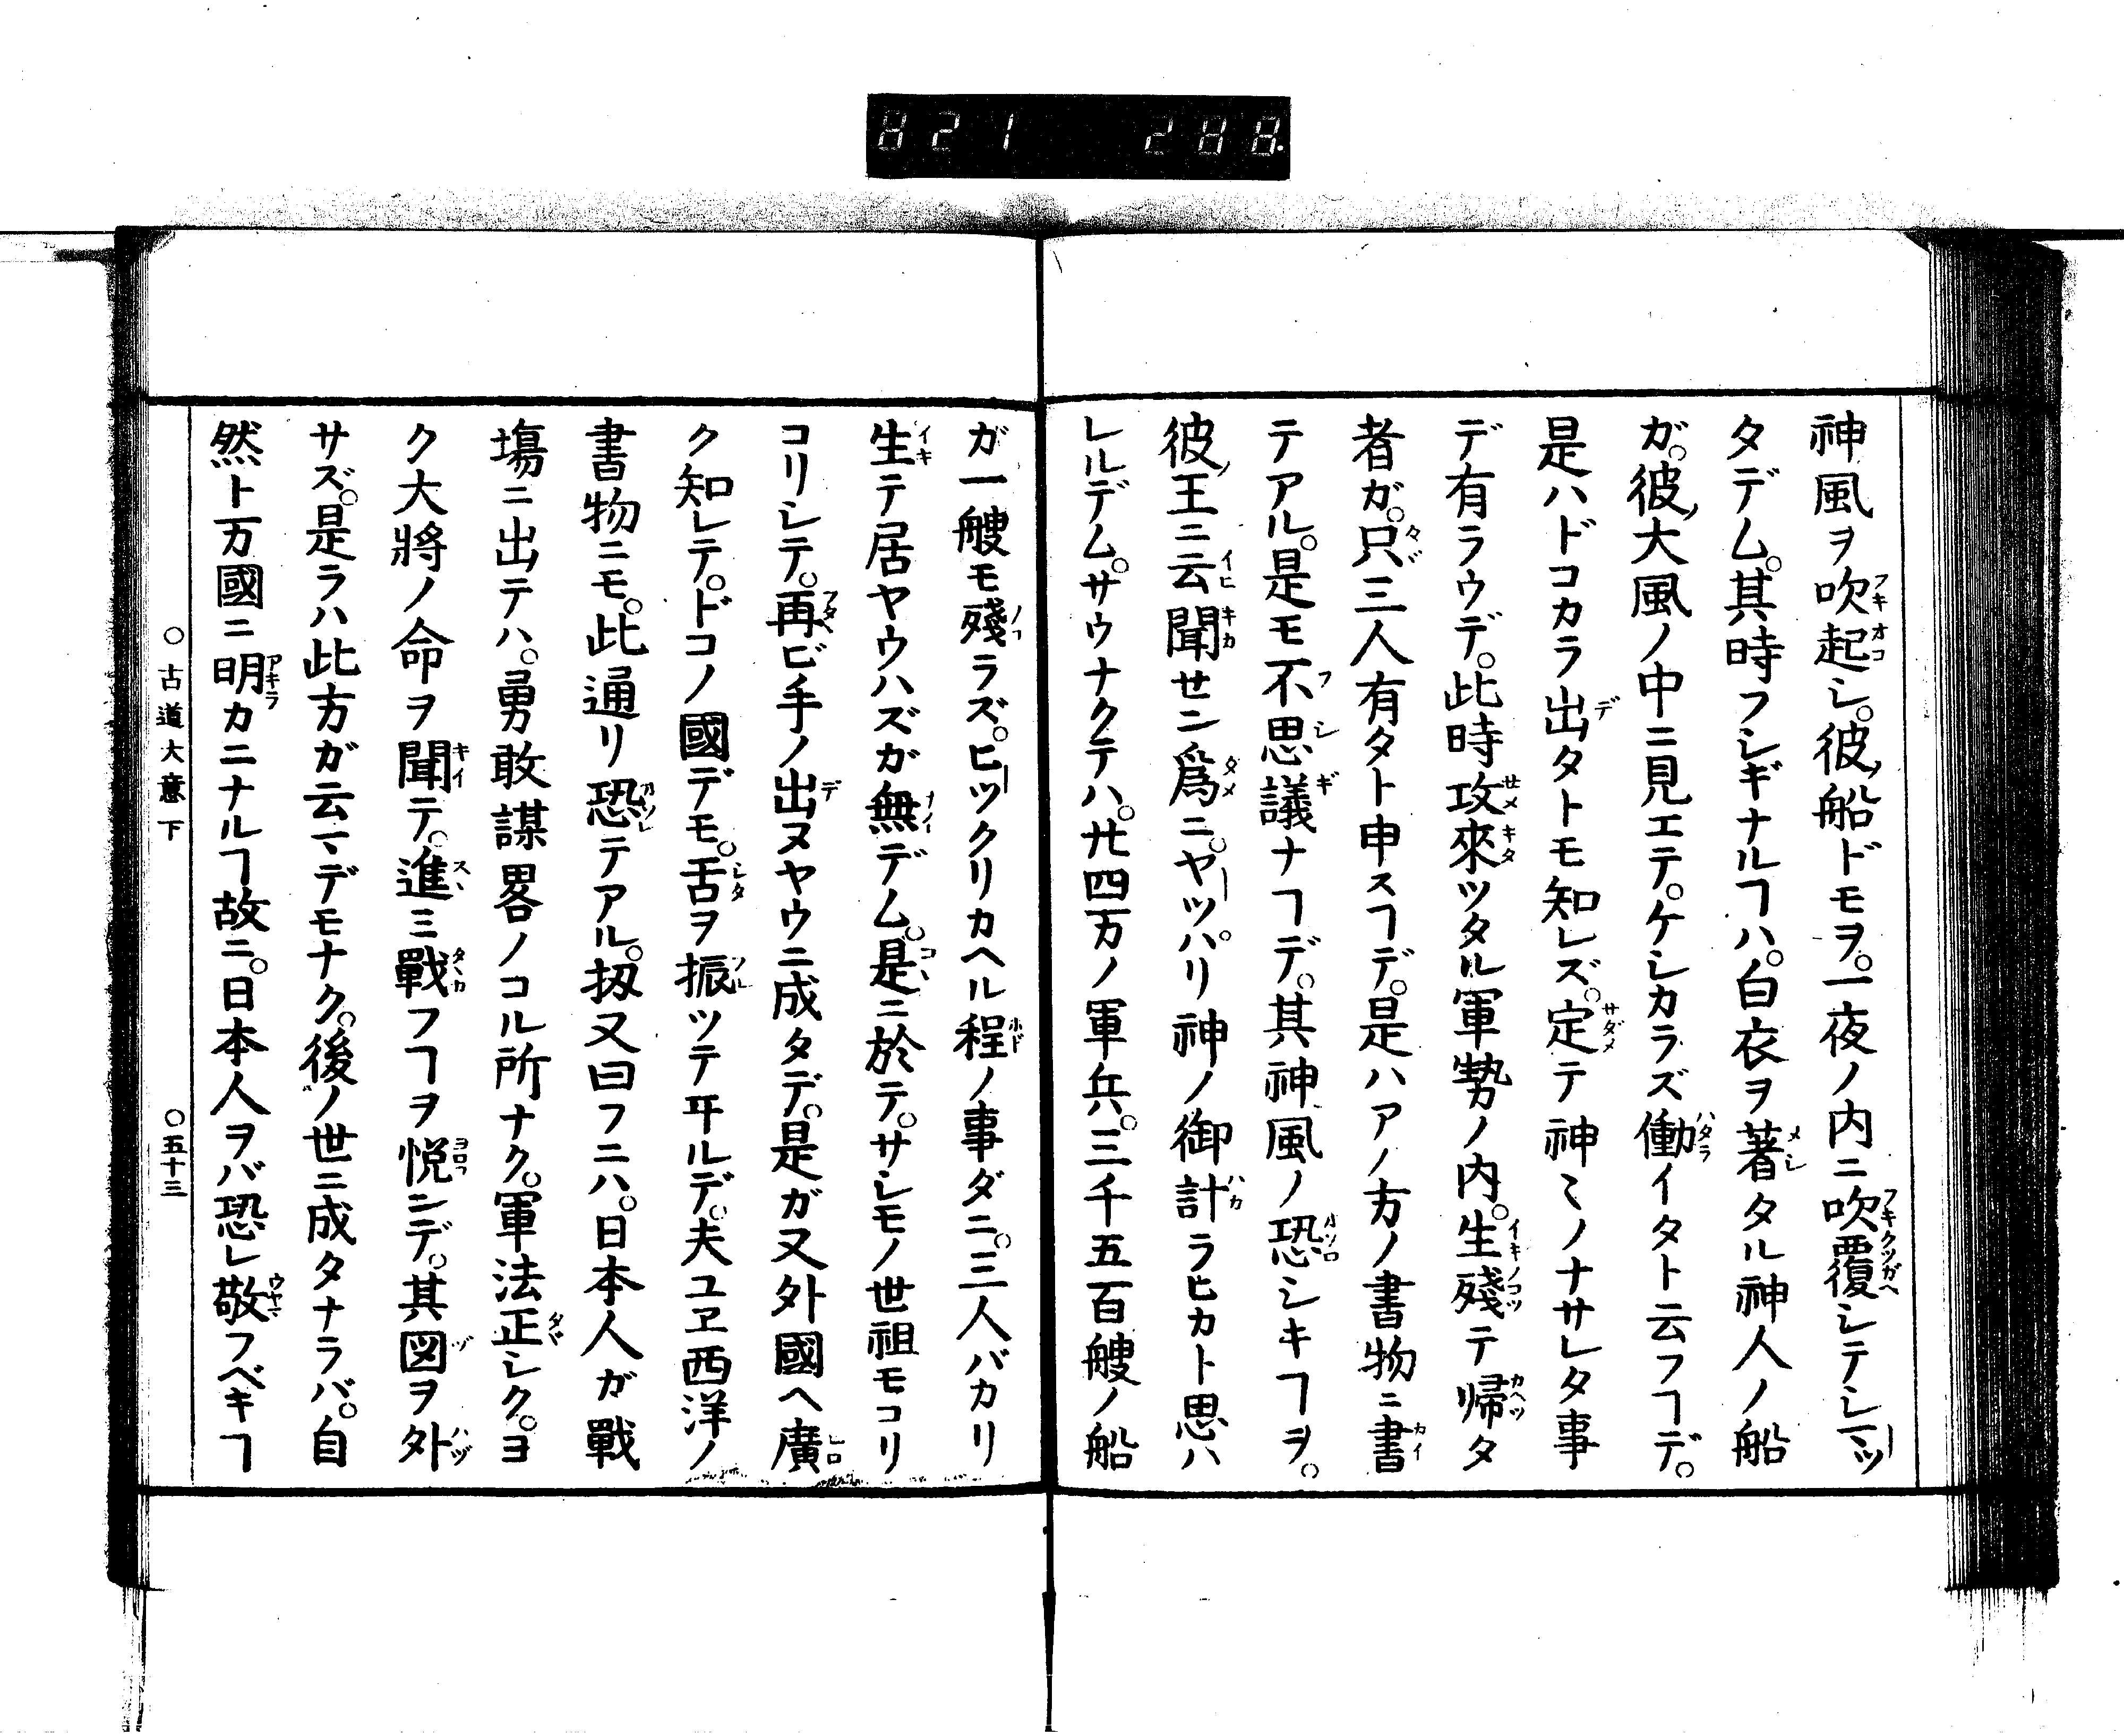 821 288
神風ヲ吹起シ。彼ノ船ドモヲ。一夜ノ内ニ吹覆シテシマツ
タデム。其時フシギナルヿハ。白衣ヲ著タル神人ノ船
ガ。彼ノ大風ノ中ニ見エテ。ケシカラズ働イタト云フヿデ。
是ハドコカラ出タトモ知レズ。定テ神ミノナサレタ事
デ有ラウデ。此時攻來ツタル軍勢ノ内。生殘テ帰タ
者ガ。只三人有タト申スヿデ。是ハアノ方ノ書物ニ書
テアル。是モ不思議ナヿデ。其神風ノ恐シキヿヲ。
彼ノ王ニ云聞セン爲ニ。ヤツパリ神ノ御計ラヒカト思ハ
レルデム。サウナクテハ。廿四万ノ軍兵。三千五百艘ノ船
ガ一艘モ殘ラズ。ヒツクリカヘル程ノ事ダニ。三人バカリ
生テ居ヤウハズガ無デム。是ニ於テ。サシモノ世祖モコリ
コリシテ。再ビ手ノ出ヌヤウニ成タデ。是ガ又外國ヘ廣
ク知レテ。ドコノ國デモ。舌ヲ振ツテヰルデ。夫ユヱ西洋ノ
書物ニモ。此通リ恐テアル。扨又曰フニハ。日本人ガ戰
塲ニ出テハ。勇敢謀畧ノコル所ナク。軍法正シク。ヨ
ク大將ノ命ヲ聞テ。進ミ戰フヿヲ悦ンデ。其図ヲ外
サズ。是ラハ此方ガ云マデモナク。後ノ世ニ成タナラバ。自
然ト万國ニ明カニナルヿ故ニ。日本人ヲバ恐レ敬フベキヿ
○古道大意下 ○五十三